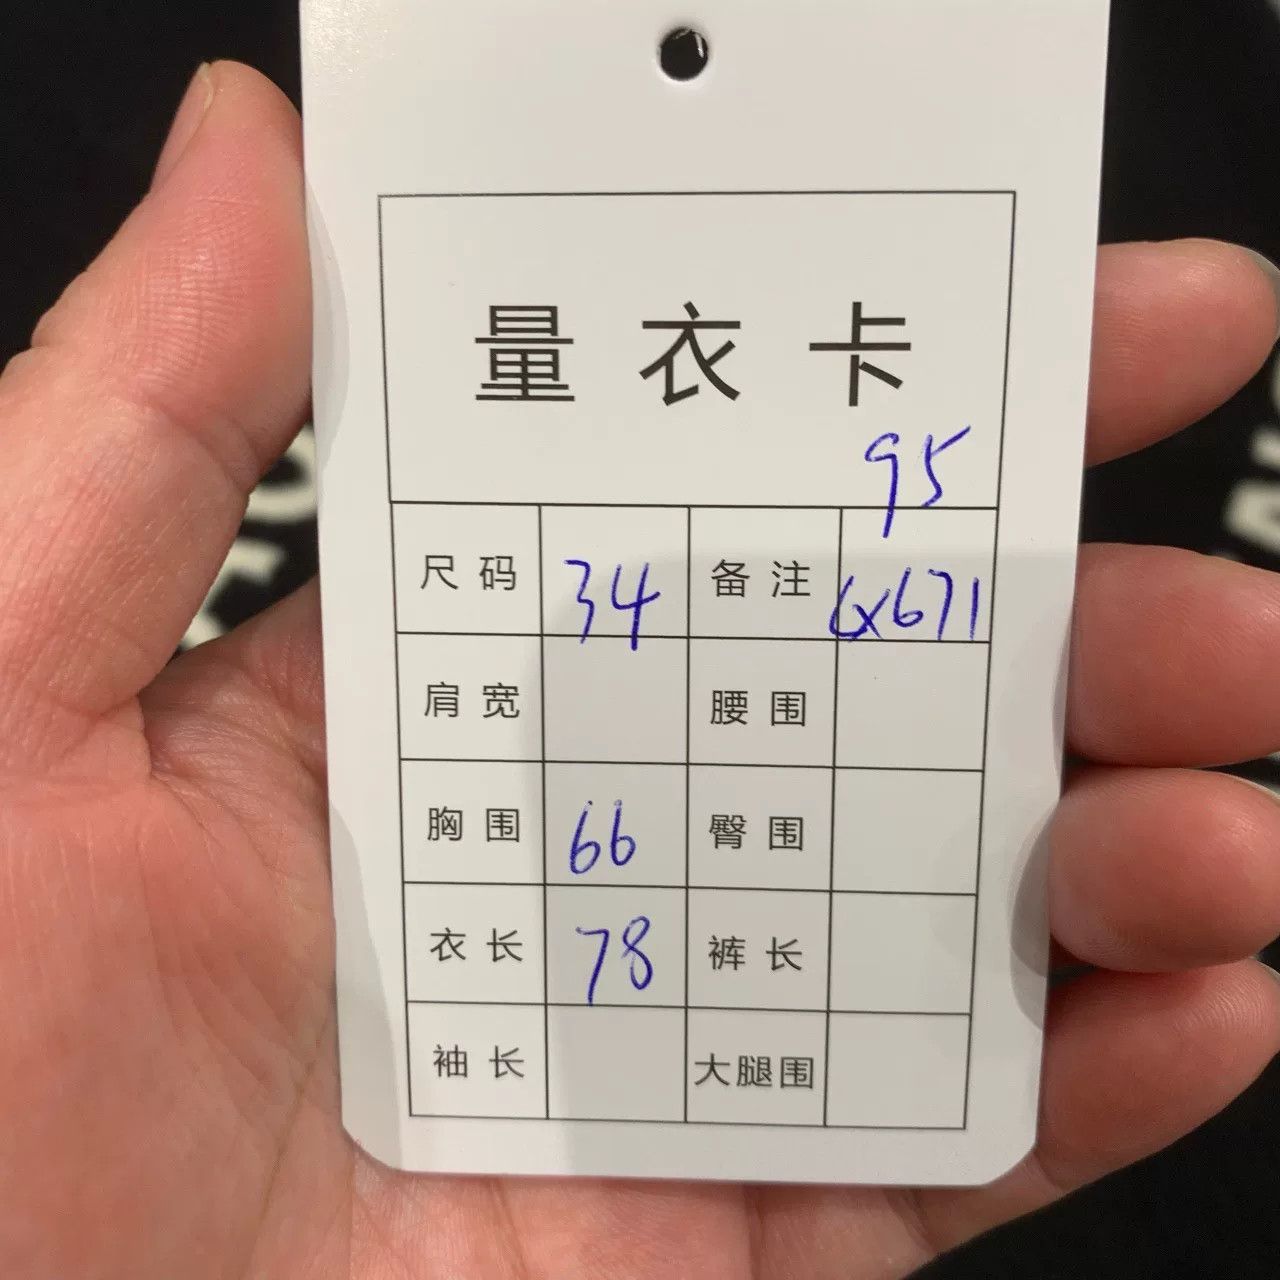 量衣卡
95
尺码 34 备注 6x671
肩宽 腰围
胸围 66 臀围
衣长 78 裤长
袖长 大腿围